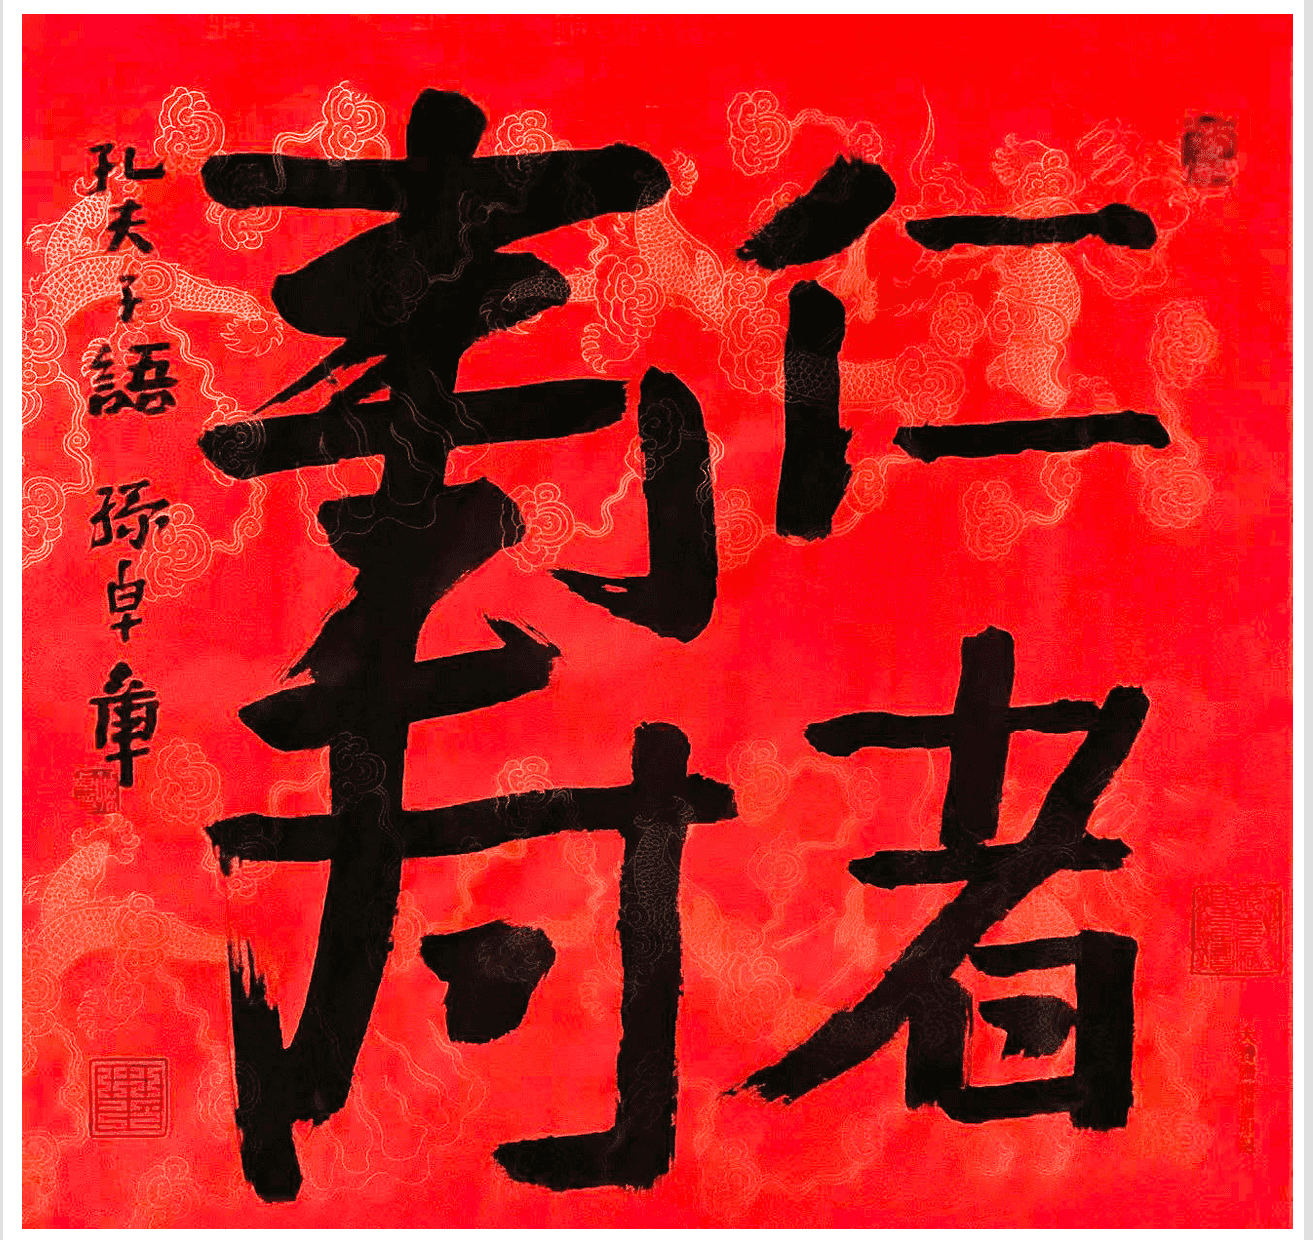 仁者
壽
孔夫子語 孫卓章